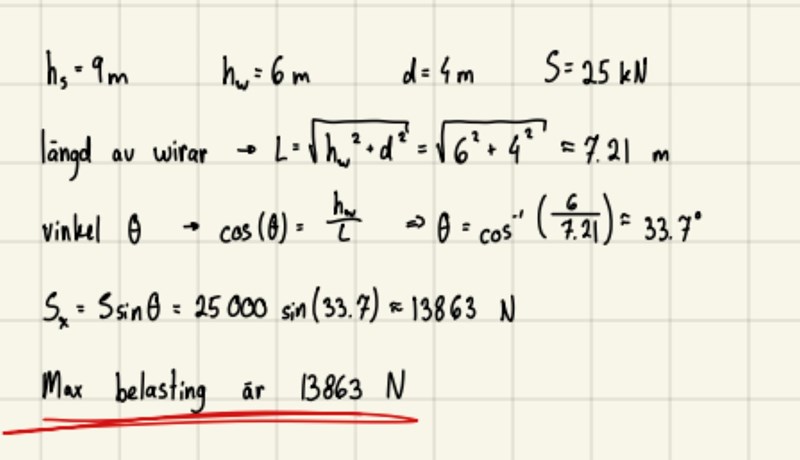 h_s = 9 m h_w = 6 m d = 4 m S = 25 kN
längd av wirar → L = √(h_w² + d²) = √(6² + 4²) ≈ 7.21 m
vinkel θ → cos(θ) = h_w/L ⇒ θ = cos⁻¹(6/7.21) ≈ 33.7°
S_x = S sin θ = 25 000 sin(33.7) ≈ 13863 N
Max belasting är 13863 N